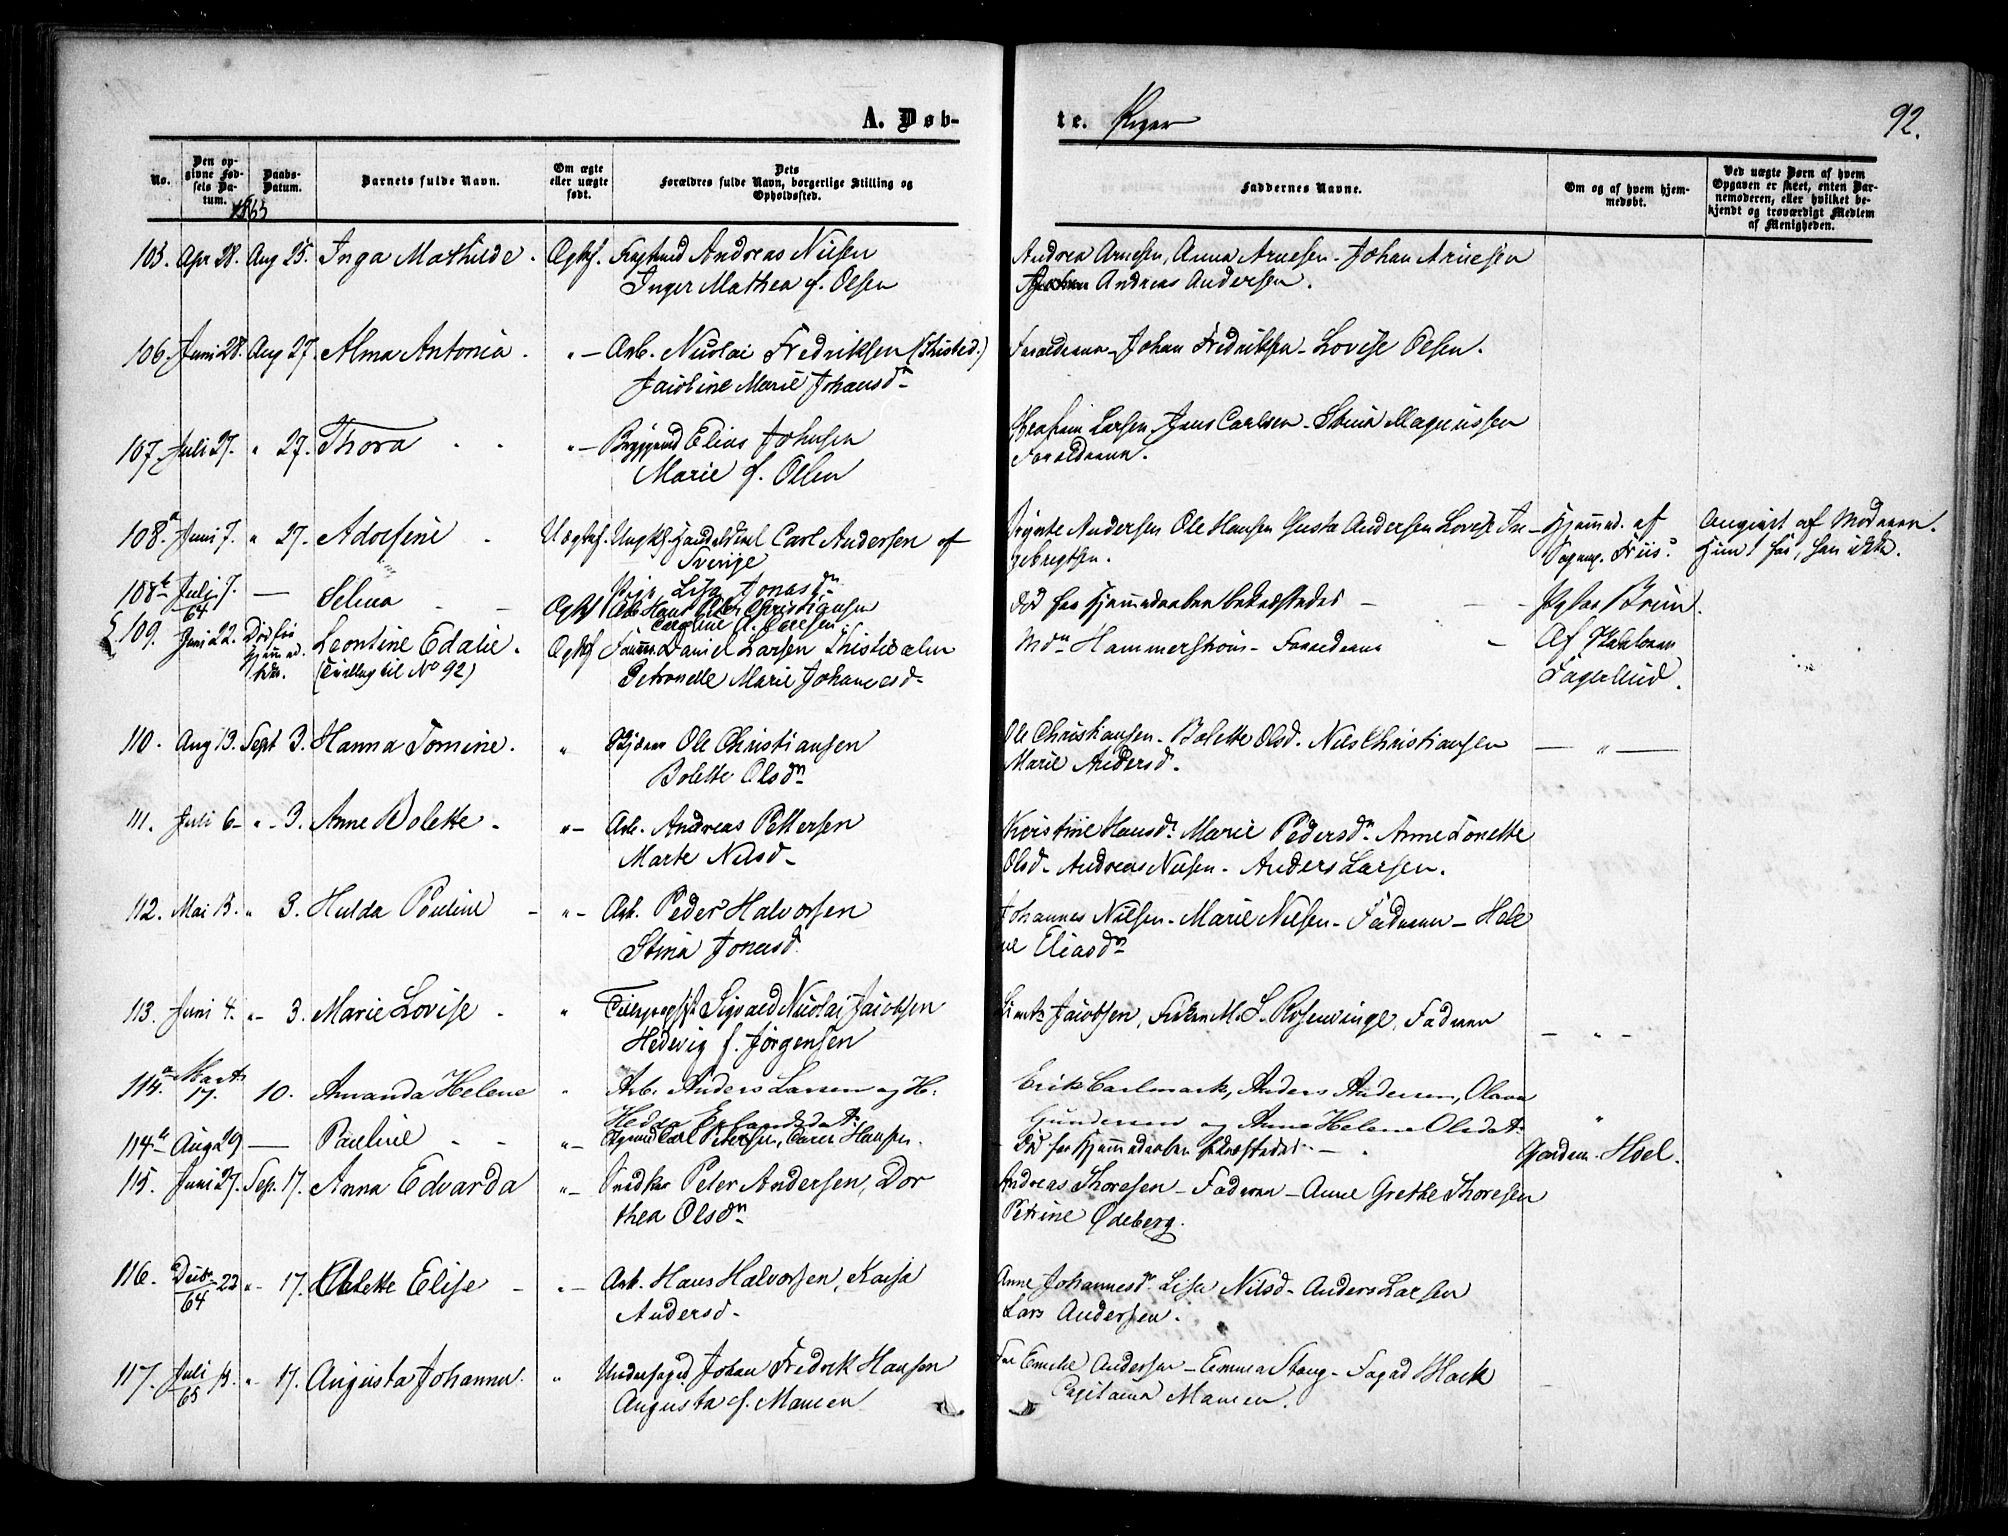 A. Døb-
te. Piger
92.
No.
Den op-
givne Fød-
sels Da-
tum.
Daabs-
Datum.
1865
Barnets fulde Navn.
Om ægte
eller uægte
født.
Dets
Forældres fulde Navn, borgerlige Stilling og
Opholdssted.
Faddernes Navne.
Om og af hvem hjem-
medøbt.
Ved uægte Børn af hvem
Opgaven er skeet, enten Bar-
nemoderen, eller hvilket be-
kjendt og troværdigt Medlem
af Menigheden.
105. Apr 28. Aug 25. Inga Mathilde. Ægtef. Andreas Nilsen
Inger Mathea f. Olsen
Andrea Arnesen, Anna Arnesen - Johan Arnesen
Andreas Andersen.
106. Juni 28. Aug 27. Alma Antonia. " - Arb. Nicolai Fredriksen (Thisted.)
Jacobine Marie Johansdn
Forældrene - Johan Fredriksen - Lovise Olsen.
107. Juli 27. " 27. Thora " - Elias Johnsen
Marie f. Olsen
Larsen, Jens Carlsen - Stina Magnussen
Forældrene.
108a Juni 7. " 27. Adolfine Uægtef. Ungk. Carl Andersen af
Sverige
Pige Lisa Jonasdn
Andersen Ole Hansen Gusta Andersen Lovise In-
gebregtsen.
Hjemmed. af
Sognep. Friis.
Angivet af Moderen.
108b Juli 7. — Selma Ægtef Arb. Hans Christiansen
64
Caroline f. Olsen.
død før Hjemmedaaben bekræftedes
Brun.
109. Juni 22. Leontine Edalie. Ægtef Daniel Larsen Thistedalen
(Tvilling til No 92)
Petronelle Marie Johannesd-
Mdn Hammerstrøm - Forældrene
Af
Fagerlund.
110. Aug 13. Sept 3. Hanna Tomine. " Ole Christiansen
Bolette Olsdn
Ole Christiansen - Bolette Olsd. Nils Christiansen
Marie Andersd.
— " —
111. Juli 6 - " - 3. Anne Bolette. " - Arb. Andreas Pettersen
Marte Nilsd-
Kristine Hansd. Marie Pedersdn Anne Tonette
Olsd - Andreas Nilsen - Anders Larsen.
112. Mai 15. " 3. Hulda Pouline " - Arb. Peder Halvorsen
Stina Jonasd.
Johannes Nilsen - Marie Nilsen - Faderen - Hele
ne Eliasdn
113. Juni 4. " - 3. Marie Lovise " Sigvald Nicolai Jacobsen
Hedevig f. Jørgensen
Jacobsen, M. L. Rosenvinge, Faderen
- " -
114a Marts
17. 10. Amanda Helene " Arb. Anders Larsen og H:
Hedda Erlandsdat.
Erik Carlmark, Anders Andersen, Olava
Gundersen og Anne Helene Olsdat.
"
114b Aug 29 — Pauline " - Carl Petersen, Caren Hansen.
død før Hjemmedaaben bekræftedes.
Hoel.
115. Juni 27. Sep. 17. Anna Edvarda " - Snedker Peter Andersen, Dor
thea Olsdn
Andreas Thoresen - Faderen - Anne Grethe Thoresen
Petrine Ødeberg.
116. Decbr 22 " - 17. Elise " - Arb. Hans Halvorsen, Kaisa
64
Andersd-
Anne Johannesdn Lisa Nilsd - Anders Larsen
Lars Andersen.
117. Juli 15. " - 17. Augusta Johanne " Johan Fredrik Hansen
65
Augusta f. Mancen
Emilie Andersen - Emma Stang -
Mancen.